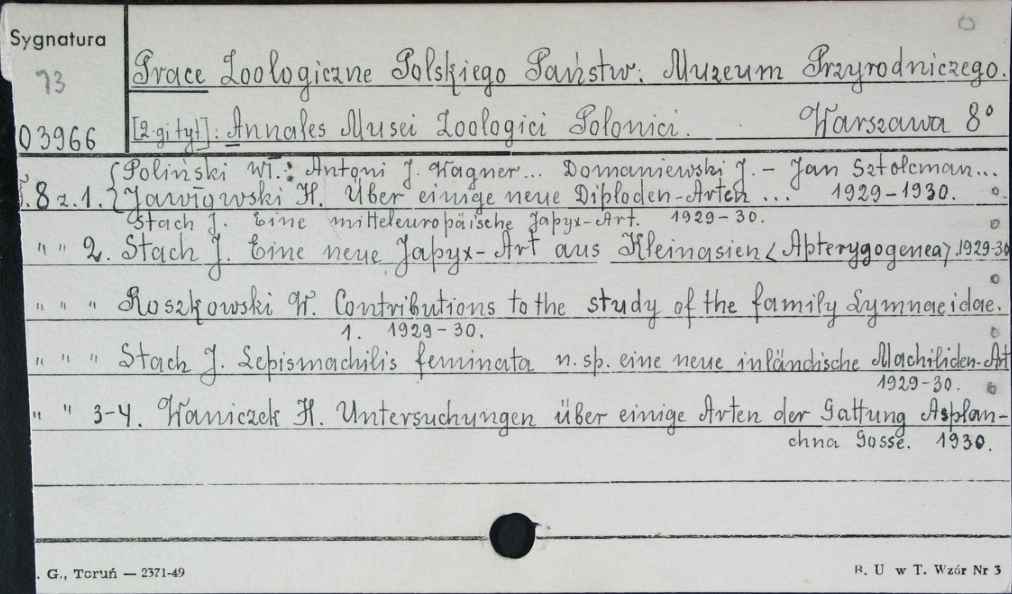 Sygnatura
73
Prace Zoologiczne Polskiego Państw. Muzeum Przyrodniczego.
03966 [2-gi tyt]: Annales Musei Zoologici Polonici. Warszawa 8°
Poliński Wł.: Antoni J. Wagner... Domaniewski J. – Jan Sztolcman...
8 z. 1. Jawłowski H. Über einige neue Diploden-Arten ... 1929-1930.
Stach J. Eine mitteleuropäische Japyx-Art. 1929-30.
" " 2. Stach J. Eine neue Japyx-Art aus Kleinasien <Apterygogenea> 1929-30
" " " Roszkowski W. Contributions to the study of the family Lymnaeidae.
1. 1929-30.
" " " Stach J. Lepismachilis feminata n. sp. eine neue inländische Machiliden-Art
1929-30.
" " 3-4. Waniczek H. Untersuchungen über einige Arten der Gattung Asplan-
chna Gosse. 1930.
. G., Toruń — 2371-49
B. U w T. Wzór Nr 3